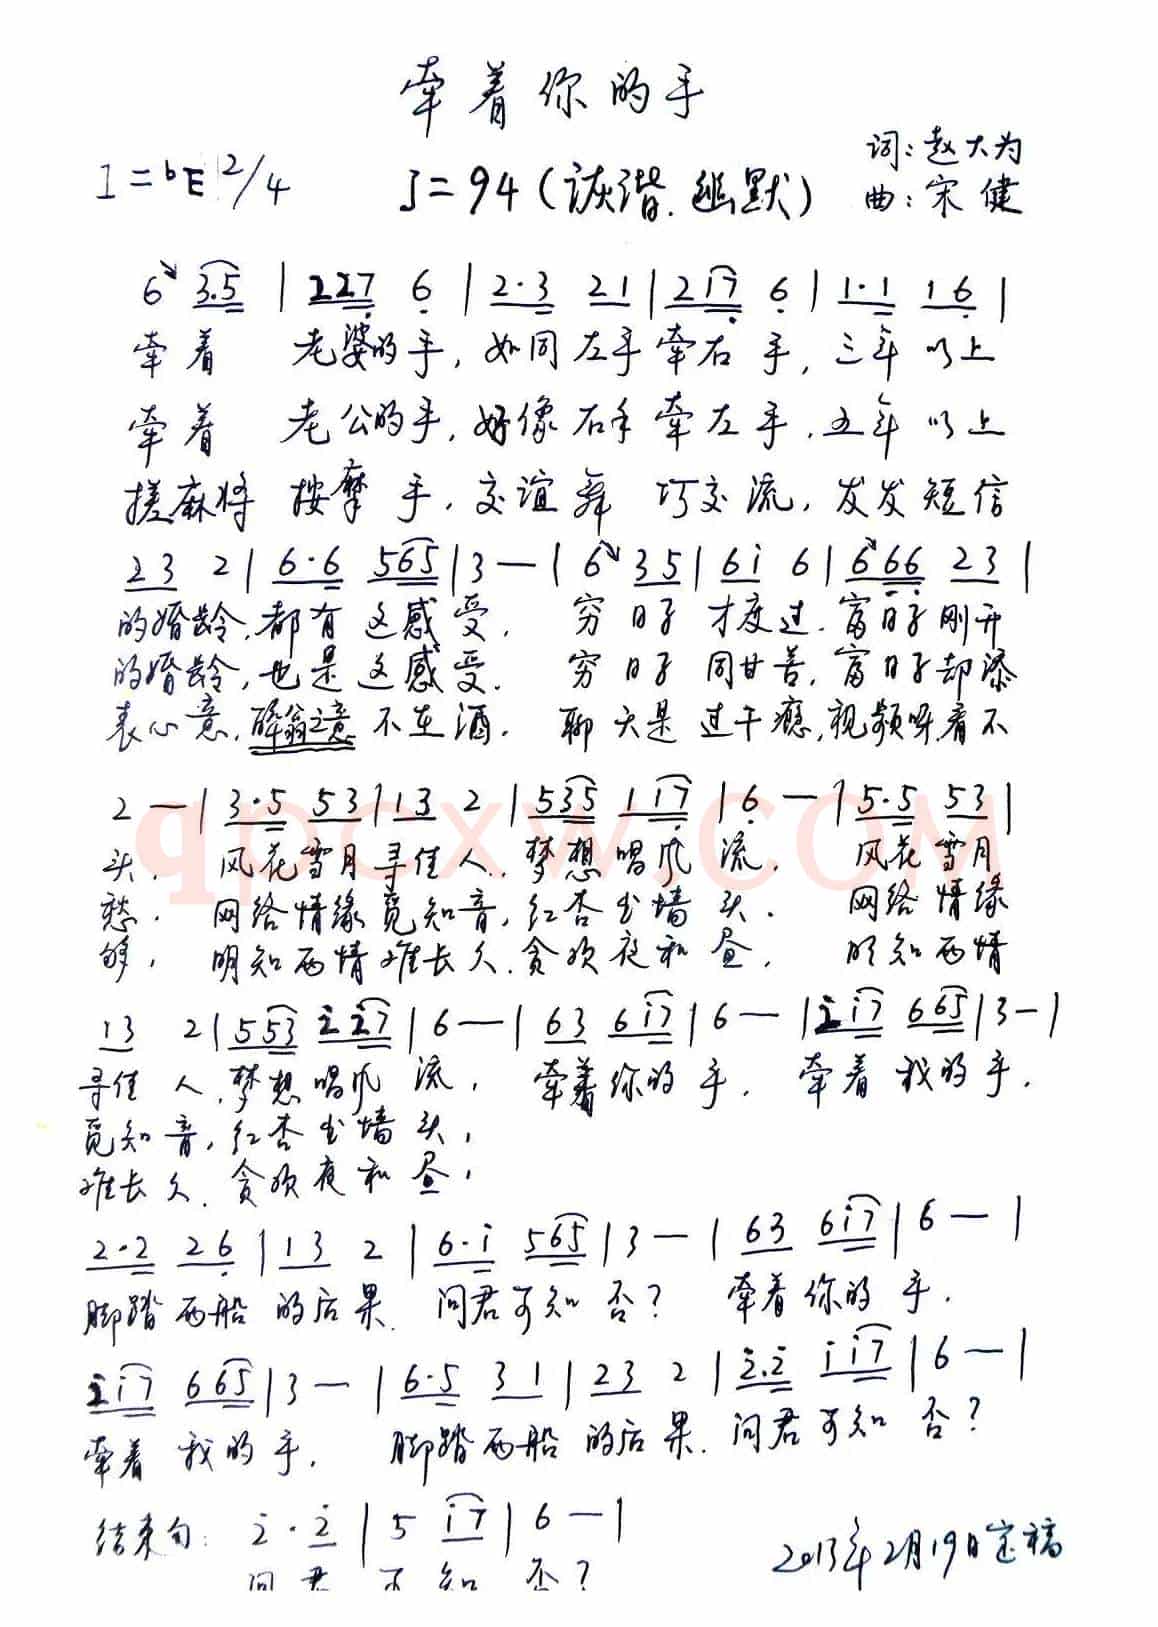 牵着你的手
1=bE 2/4 ♩=94(诙谐.幽默) 词:赵大为
曲:宋健
6 3.5 | 227 6 | 2·3 21 | 2i7 6 | 1·1 16 |
牵着 老婆的手,如同左手牵右手,三年以上
牵着 老公的手,好像右手牵左手,五年以上
搓麻将 按摩手,交谊舞 巧交流,发发短信
23 2 | 6·6 565 | 3 — | 6 35 | 6i 6 | 666 23 |
的婚龄,都有这感受. 穷日子才度过.富日子刚开
的婚龄,也是这感受. 穷日子同甘苦,富日子却添
表心意,醉翁之意不在酒. 聊天是过干瘾,视频呀看不
2 — | 3·5 53 | 13 2 | 535 1i7 | 6 — | 5·5 53 |
头, 风花雪月寻佳人,梦想唱风流, 风花雪月
愁. 网络情缘觅知音,红杏出墙头. 网络情缘
够, 明知两情难长久.贪欢夜和昼, 明知两情
13 2 | 553 i i7 | 6 — | 63 6i7 | 6 — | i i7 665 | 3 — |
寻佳人,梦想唱风流, 牵着你的手, 牵着我的手.
觅知音,红杏出墙头,
难长久.贪欢夜和昼,
2·2 26 | 13 2 | 6·i 565 | 3 — | 63 6i7 | 6 — |
脚踏两船的后果.问君可知否? 牵着你的手.
i i7 665 | 3 — | 6·5 31 | 23 2 | 2·2 i i7 | 6 — |
牵着我的手, 脚踏两船的后果.问君可知否?
结束句: 2·2 | 5 i7 | 6 — |
问君可知否?
2013年2月19日定稿
qpcxw.COM